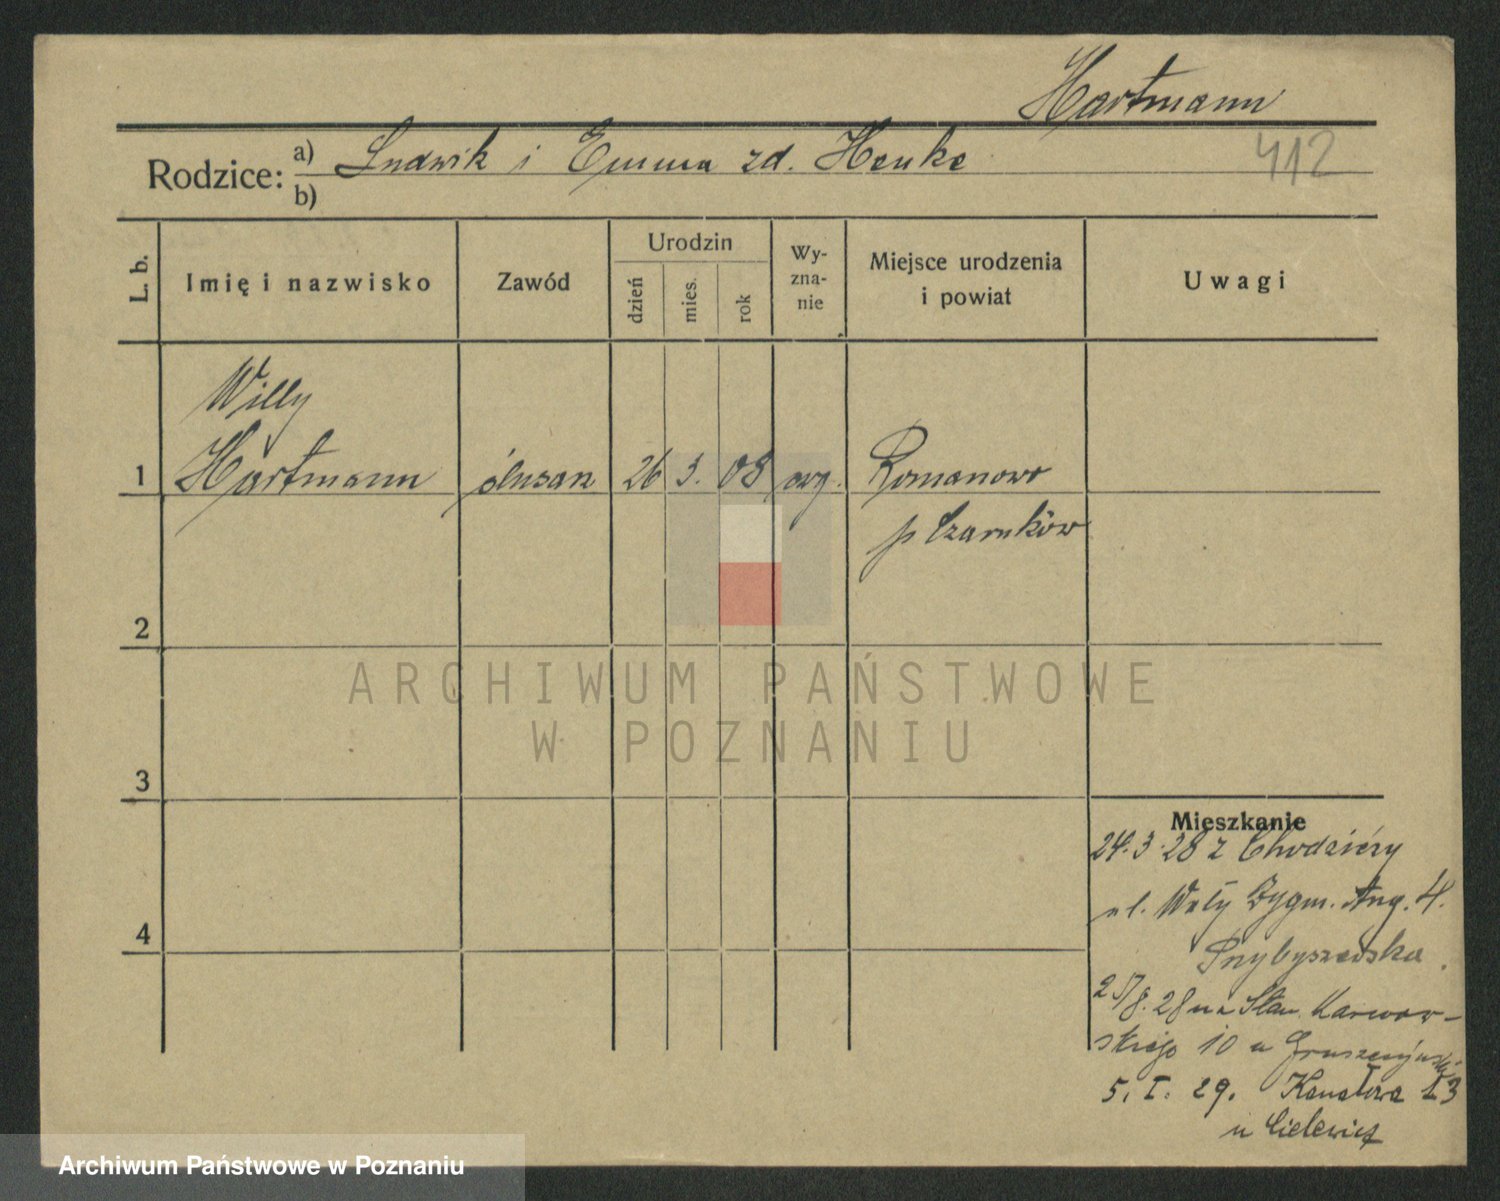 Hartmann
Rodzice: a) Ludwik i Emma zd. Henke 412
b)
L. b. Imię i nazwisko Zawód Urodzin dzień mies. rok Wy-zna-nie Miejsce urodzenia i powiat Uwagi
Willy
1 Hartmann ślusarz 26 3. 08 ewg. Romanowo
p Czarnków
2
ARCHIWUM PAŃSTWOWE
W POZNANIU
3
Mieszkanie
24.3.28 z Chodzieży
ul. Wały Zygm. Aug. 4.
Przybyszewska.
25/8.28 na Stan. Karwow-
skiego 10 u
4
5. I. 29. Kanałowa 13
u Cielewicz
Archiwum Państwowe w Poznaniu